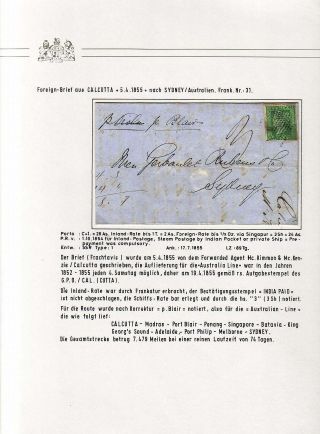 Foreign-Brief aus CALCUTTA • 5.4.1855 • nach SYDNEY/Australien. Frank.Nr.: 31.
p. Blair
Sydney
Porto : C+I. = 28 As. Inland-Rate bis 1 T. = 2 As. Foreign-Rate bis ½ Oz. via Singapur = 2 Sh = 24 As.
P.R.v. : 1.10.1854 für Inland-Postage, Steam Postage by Indian Packet or private Ship = Pre-
payment was compulsory.
Entw. : SG# Type: 1 Ank.: 17.7.1855 LZ
Der Brief (Frachtavis) wurde am 5.4.1855 von dem Forwarded Agent Mc.Kimmon & Mc.Ken-
zie / Calcutta geschickt, die Auflieferung für die-Australia Line- war in den Jahren
1852 - 1855 jeden 4. Samstag möglich, daher am 19.4.1855 gemäß rs. Aufgabestempel des
G.P.O. / CAL.(CUTTA).
Die Inland-Rate war durch Frankatur erbracht, der Bestätigungsstempel « INDIA PAID «
ist nicht abgeschlagen, die Schiffs-Rate bar erlegt und durch die hs. "3" (3 Sh) notiert.
Für die Route wurde nach Korrektur « p. Blair « notiert, also für die « Australian - Line «
die wie folgt lief:
CALCUTTA - Madras - Port Blair - Penang - Singapore - Batavia - King
Georg's Sound - Adelaide - Port Philip - Melborne - SYDNEY.
Die Gesamtstrecke betrug 7.479 Meilen bei einer reinen Laufzeit von 74 Tagen.